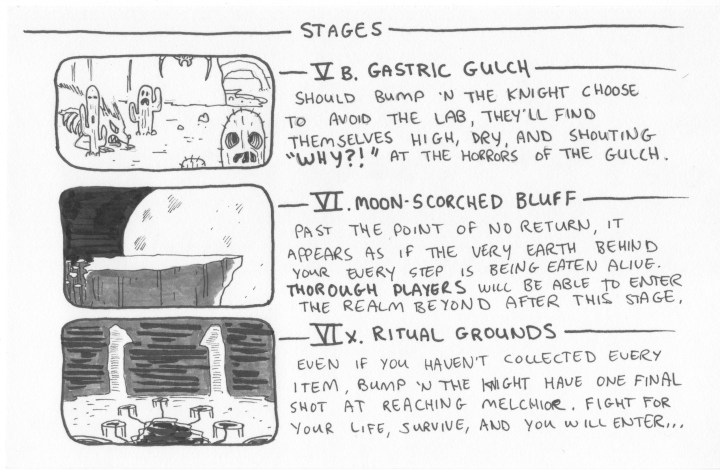 STAGES
V B. GASTRIC GULCH
SHOULD BUMP 'N THE KNIGHT CHOOSE
TO AVOID THE LAB, THEY'LL FIND
THEMSELVES HIGH, DRY, AND SHOUTING
"WHY?!" AT THE HORRORS OF THE GULCH.
VI. MOON-SCORCHED BLUFF
PAST THE POINT OF NO RETURN, IT
APPEARS AS IF THE VERY EARTH BEHIND
YOUR EVERY STEP IS BEING EATEN ALIVE.
THOROUGH PLAYERS WILL BE ABLE TO ENTER
THE REALM BEYOND AFTER THIS STAGE.
VI X. RITUAL GROUNDS
EVEN IF YOU HAVEN'T COLLECTED EVERY
ITEM, BUMP 'N THE KNIGHT HAVE ONE FINAL
SHOT AT REACHING MELCHIOR. FIGHT FOR
YOUR LIFE, SURVIVE, AND YOU WILL ENTER...